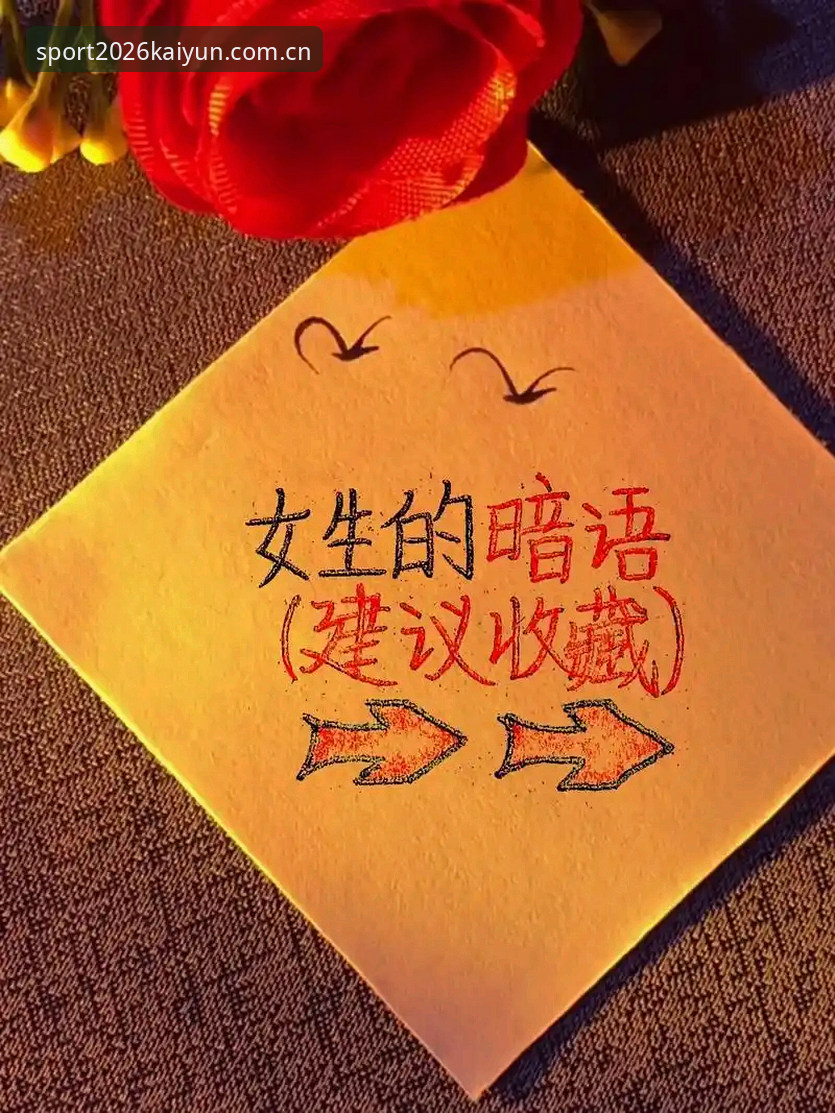 sport2026kaiyun.com.cn
女生的暗语
(建议收藏)